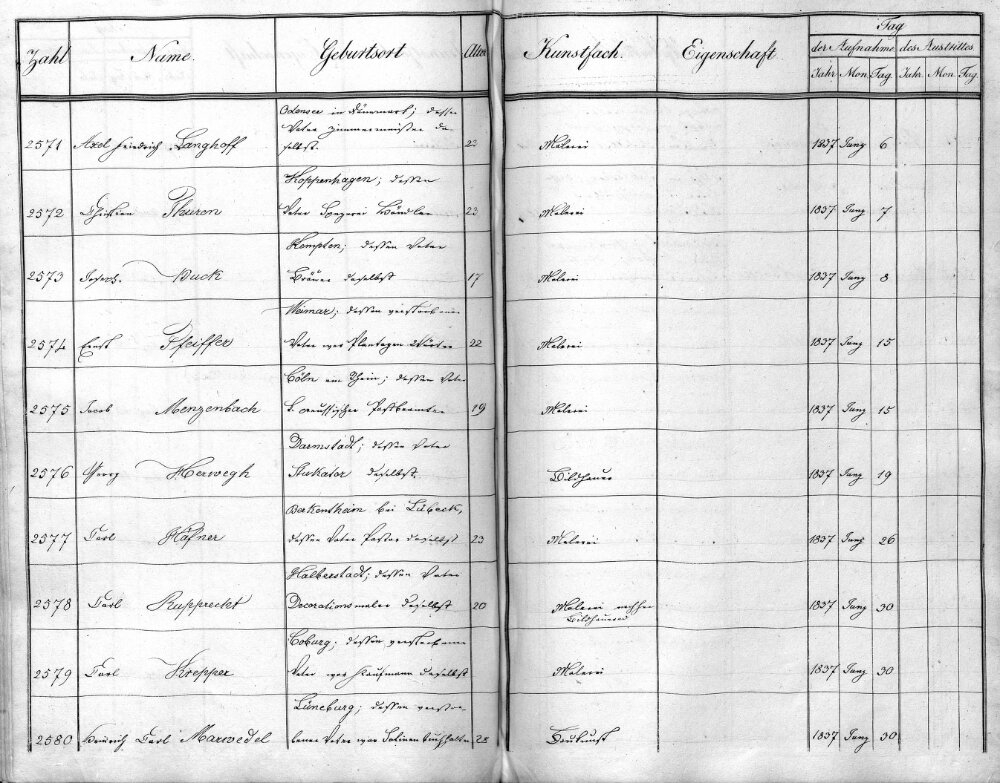 Zahl Name. Geburtsort Alter Kunstfach. Eigenschaft Tag
der Aufnahme des Austrittes
Jahr Mon. Tag Jahr. Mon. Tag.
Odensee in Dänemark; dessen
Vater Zimmermeister da-
2571 Axel Friedrich Langhoff selbst. 23 Malerei 1837 Juny 6
Koppenhagen; dessen
2572 Christian Thuren Vater Spezerei Händler 23 Malerei 1837 Juny 7
Kempten; dessen Vater
2573 Joseph. Buck Bräuer daselbst 17 Malerei 1837 Juny 8
Weimar; dessen verstorbener
2574 Ernst Pfeiffer Vater war Plantagen Wärter 22 Malerei 1837 Juny 15
Cöln am Rhein; dessen Vater
2575 Jacob Menzenbach k. preussischer Postbeamter 19 Malerei 1837 Juny 15
Darmstadt; dessen Vater
2576 Georg Herwegh Stukator daselbst Bildhauer 1837 Juny 19
Berkentheim bei Lübeck,
2577 Carl Häfner dessen Vater Pastor daselbst 23 Malerei 1837 Juny 26
Halberstadt; dessen Vater
2578 Carl Rupprecht Decorationsmaler daselbst 20 Malerei nachher 1837 Juny 30
Bildhauerei
Coburg; dessen verstorbener
2579 Carl Krepper Vater war Kaufmann daselbst Malerei 1837 Juny 30
Lüneburg; dessen verstor-
2580 Heinrich Carl Marwedel bener Vater war Salinen Buchhalter 28 Baukunst 1837 Juny 30